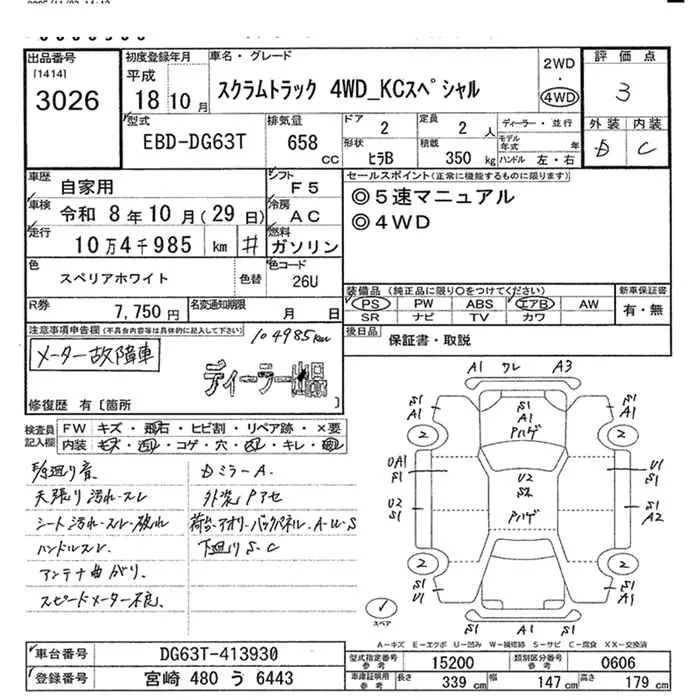 出品番号
[1414]
3026
初度登録年月
平成
18 10 月
車名・グレード
スクラムトラック 4WD_KCスペシャル
2WD
・
4WD
評価点
3
外装 内装
D C
型式
EBD-DG63T
排気量
658 CC
ドア
2
定員
2 人
形状
ヒラB
積載
350 kg
ディーラー・並行
モデル年式 年
ハンドル 左・右
車歴
自家用
シフト
F5
車検
令和 8 年 10 月 (29 日)
冷房
AC
走行
10 万 4 千 985 km #
燃料
ガソリン
色
スペリアホワイト
色替
色コード
26U
R券
7,750 円
名変通知期限
月 日
セールスポイント(正常に機能するものに限ります)
◎5速マニュアル
◎4WD
装備品 (純正品に限り○をつけてください)
PS PW ABS エアB AW
SR ナビ TV カワ
新車保証書
有・無
後日品
保証書・取説
注意事項申告欄(不具合内容等は具体的に記入して下さい)
104985km
メーター故障車
ディーラー
修復歴 有 [箇所 ]
検査員記入欄
FW キズ・飛石・ヒビ割・リペア跡・×要
内装・キズ・コゲ・穴・キレ
天張り汚れ・スレ
シート汚れ・スレ・破れ
ハンドルスレ
アンテナ曲がり.
スピードメーター不良.
DミラーA.
外装Pアセ
荷台・アオリ・バックパネル.A-W-S
下廻りS-C
A1 ワレ A3
S1 A1
S1 A1 Pハゲ
S1 A1
2 2
UA1 S1
U2
Pハゲ
U1 S1
U2 S1
S1 A2
2 2
S1 U1
S1 A1
S1 A1
スペア
A-キズ E-エクボ U-凹み W-補修跡 S-サビ C-腐食 XX-交換済
車台番号
DG63T-413930
登録番号
宮崎 480 う 6443
型式指定番号 参考
15200
類別区分番号 参考
0606
車庫証明用 参考
長さ 339 cm
幅 147 cm
高さ 179 cm